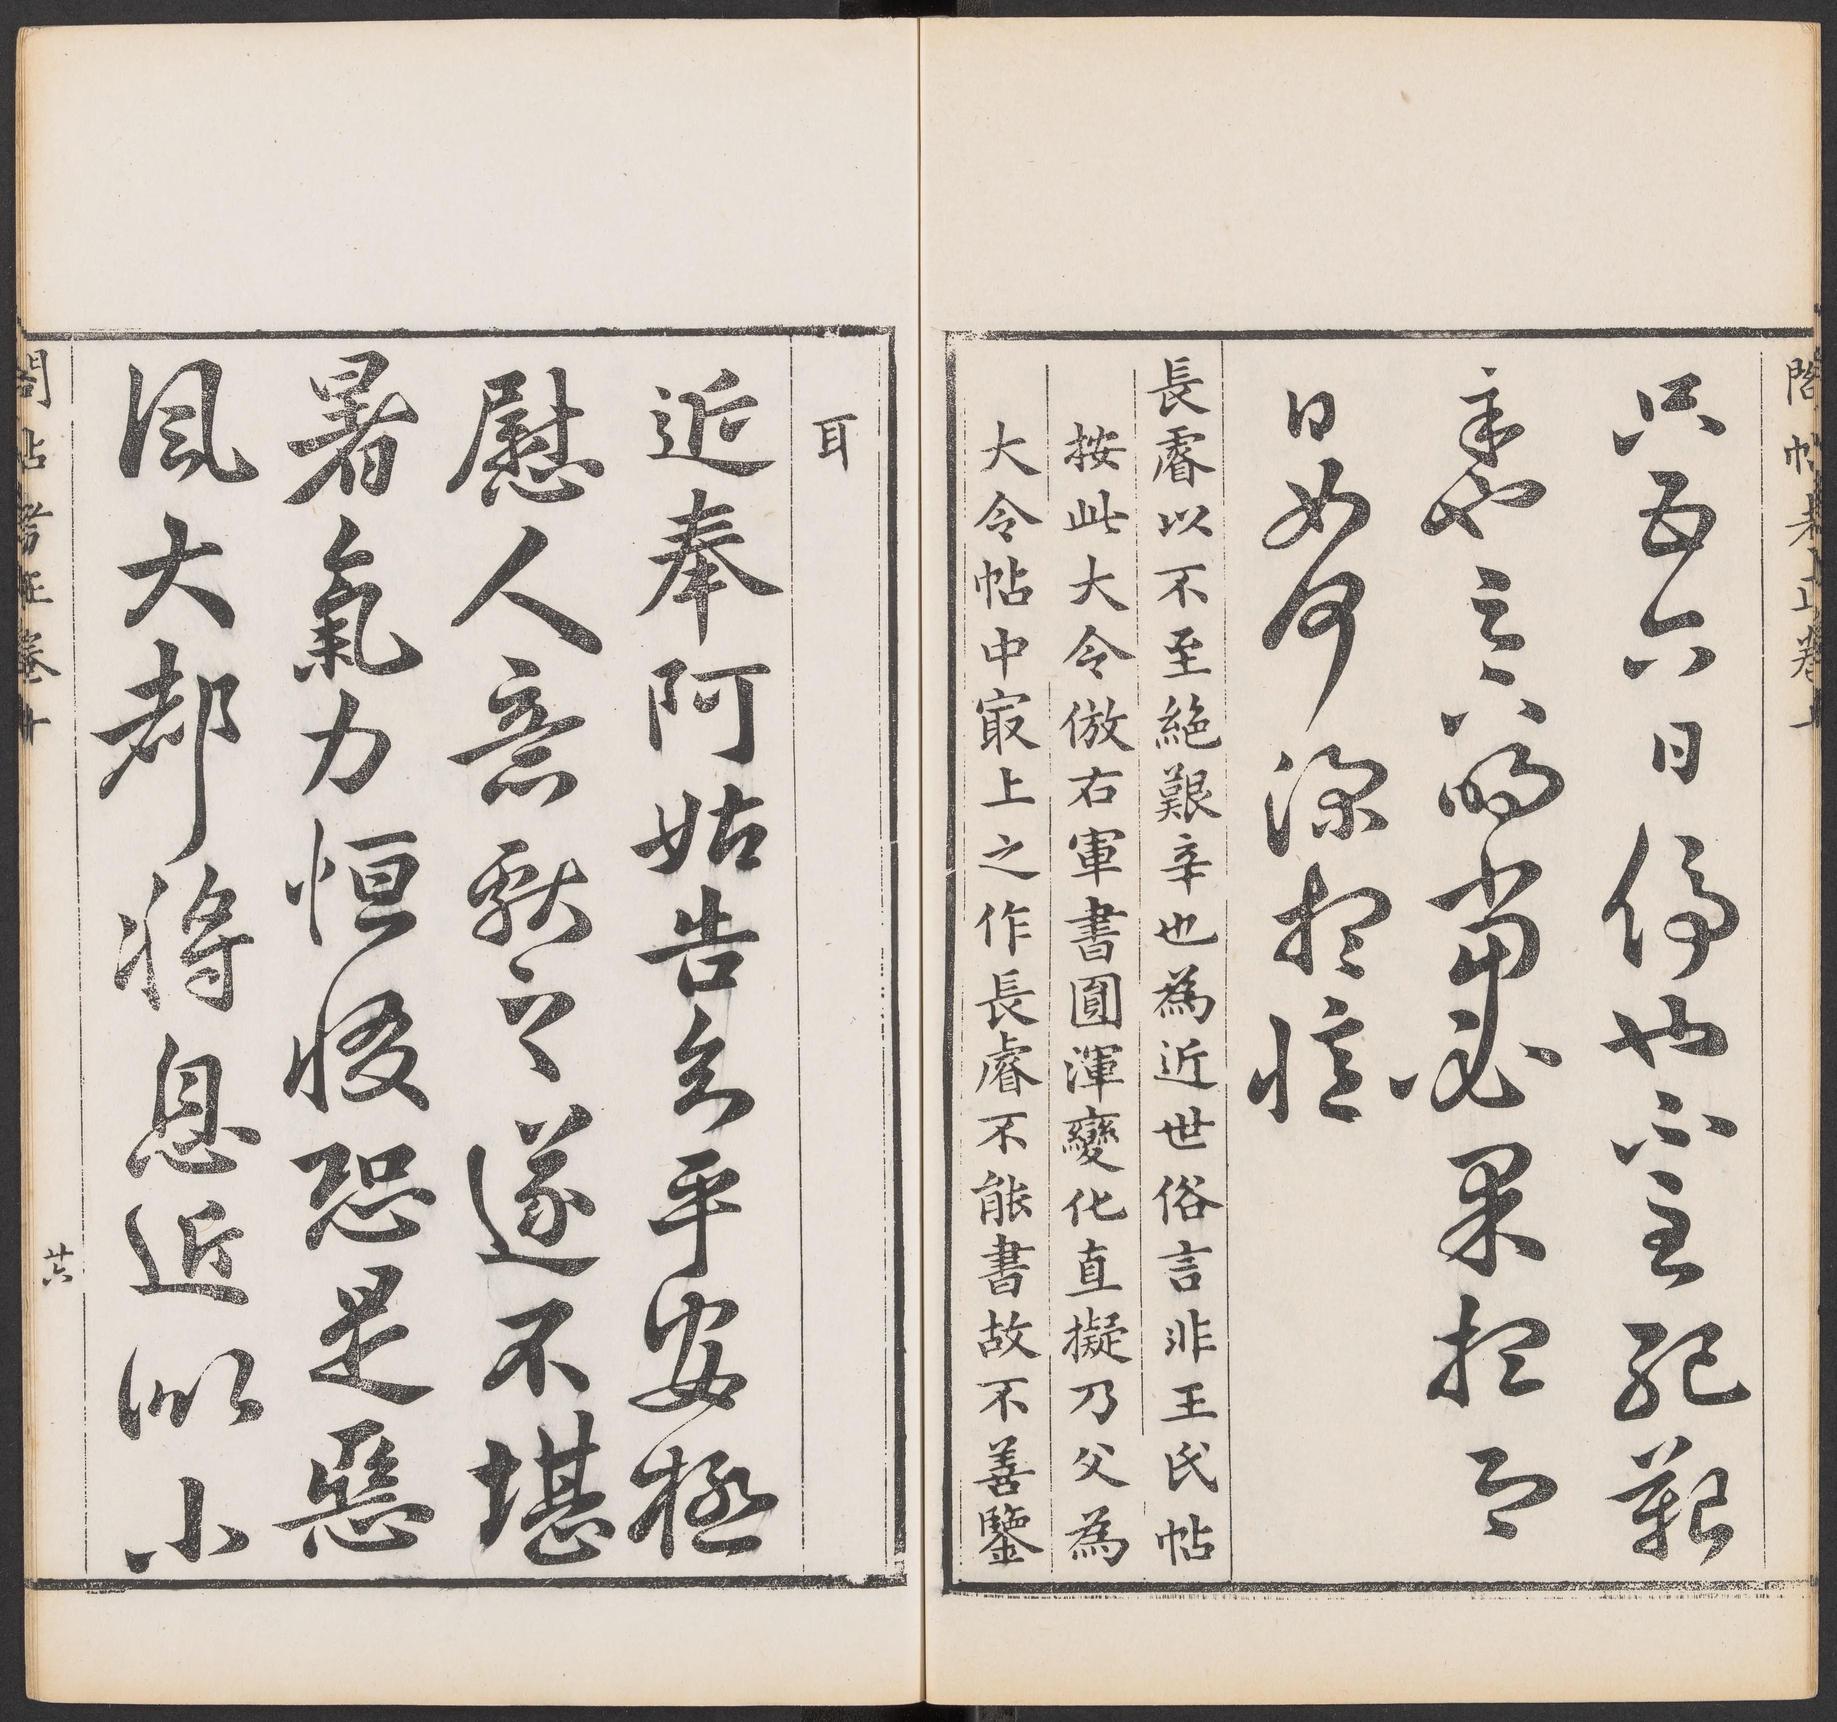 閣帖考正卷十
只五六日停也不至絕艱
辛也足下明當必果想即
日如何深想憶
長睿以不至絕艱辛也為近世俗言非王氏帖
按此大令倣右軍書圓渾變化直擬乃父為
大令帖中冣上之作長睿不能書故不善鑒
耳
近奉阿姑告知平安極
慰人意獻之遂不堪
暑氣力恒惙恐是惡
風大都將息近似小
閣帖考正卷十
廿六